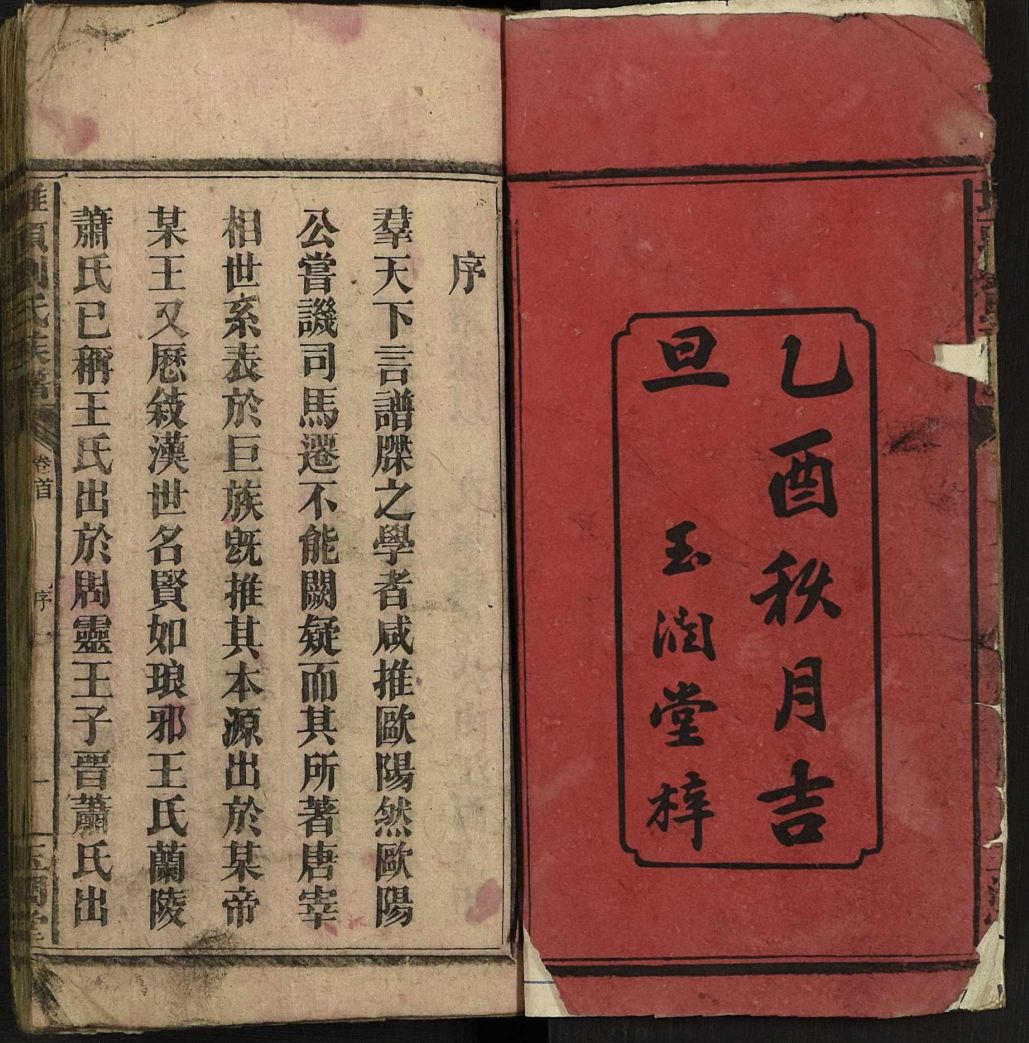 乙酉秋月吉
旦
玉潤堂梓
序
羣天下言譜牒之學者咸推歐陽然歐陽
公嘗譏司馬遷不能闕疑而其所著唐宰
相世系表於巨族旣推其本源出於某帝
某王又厯敍漢世名賢如琅邪王氏蘭陵
蕭氏已稱王氏出於周靈王子晋蕭氏出
劉氏族譜
卷首
序
一
玉潤堂